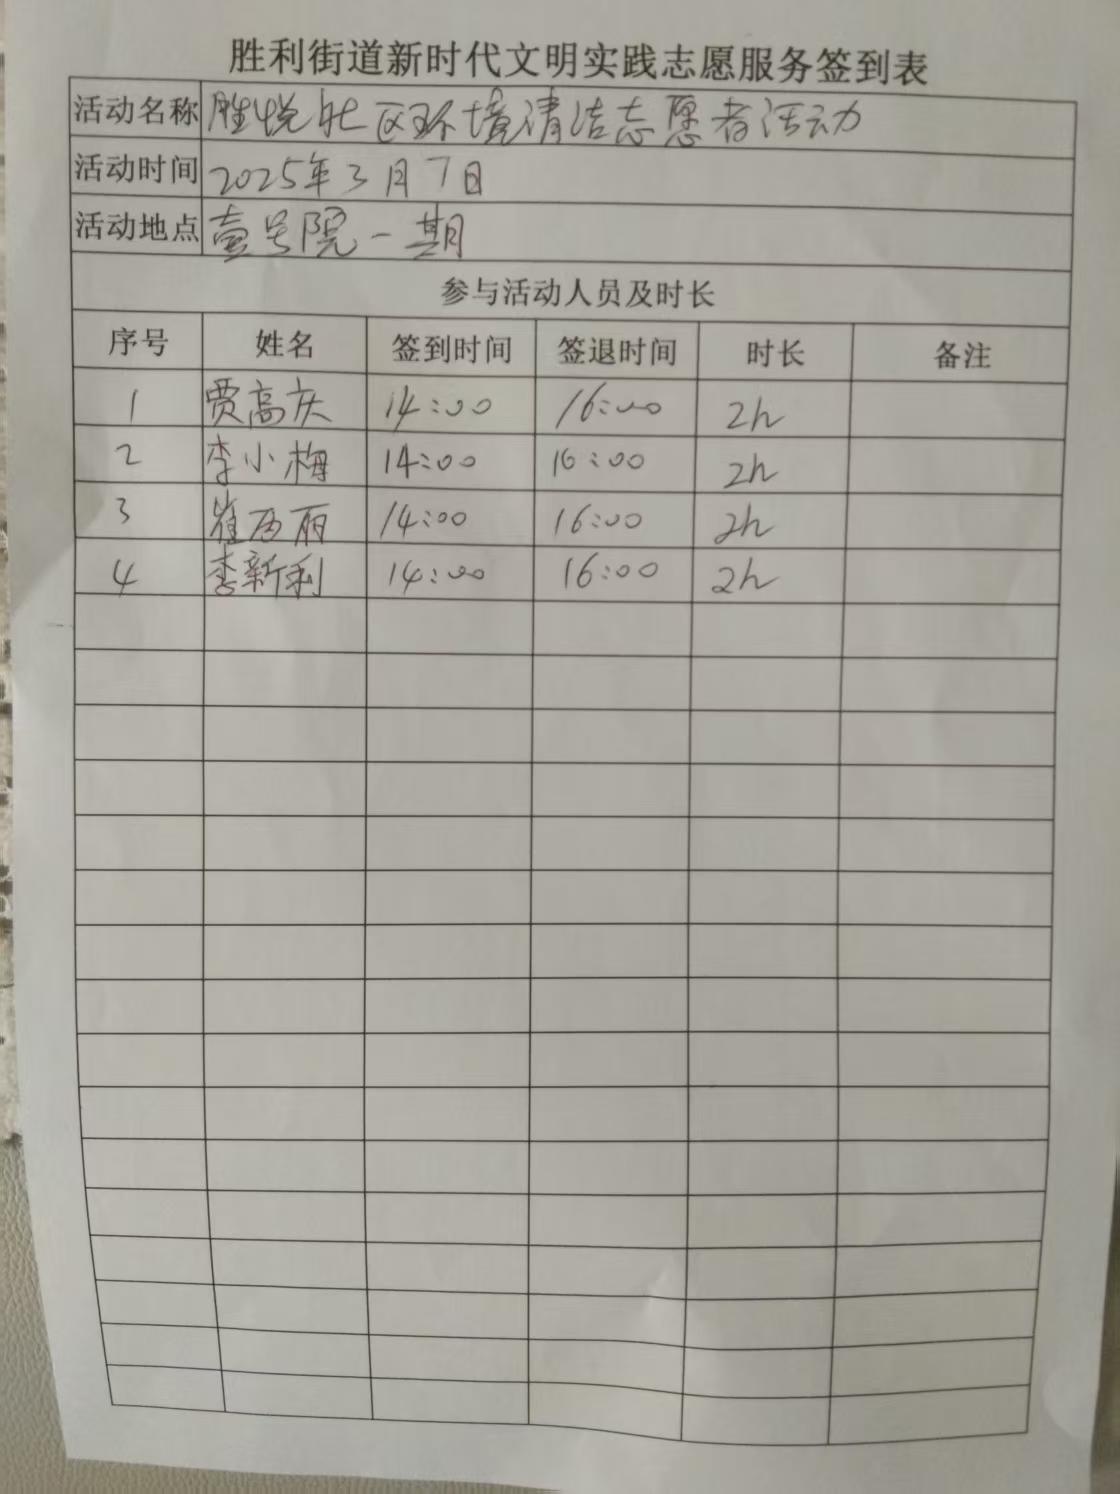 胜利街道新时代文明实践志愿服务签到表
活动名称 胜悦社区环境清洁志愿者活动
活动时间 2025年3月7日
活动地点 壹号院一期
参与活动人员及时长
序号 姓名 签到时间 签退时间 时长 备注
1 贾高庆 14:00 16:00 2h
2 李小梅 14:00 16:00 2h
3 崔丽 14:00 16:00 2h
4 李新利 14:00 16:00 2h